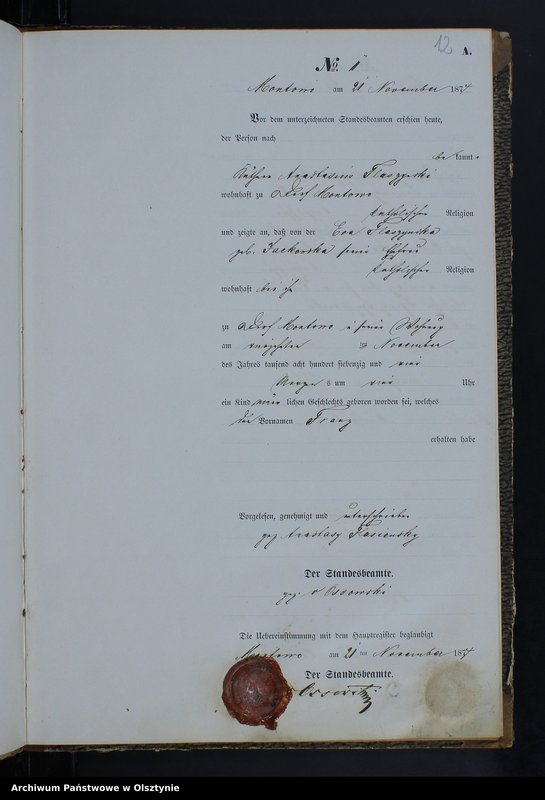 12
A.
No. 1
Montowo am 21 November 1874
Vor dem unterzeichneten Standesbeamten erschien heute,
der Person nach
be kannt.
Anastasius
wohnhaft zu Dorf Montowo
katholischer Religion
und zeigte an, daß von der Eva
geb. seiner Ehefrau
katholischer Religion
wohnhaft bei ihm
zu Dorf Montowo in seiner Wohnung
am November
des Jahres tausend acht hundert siebenzig und vier
Morgens um vier Uhr
ein Kind männlichen Geschlechts geboren worden sei, welches
die Vornamen Franz
erhalten habe
Vorgelesen, genehmigt und unterschrieben
gez Anastasy
Der Standesbeamte.
gez. v Ossowski
Die Uebereinstimmung mit dem Hauptregister beglaubigt
Montowo am 21 ten November 1874
Der Standesbeamte.
Ossowski
Archiwum Państwowe w Olsztynie